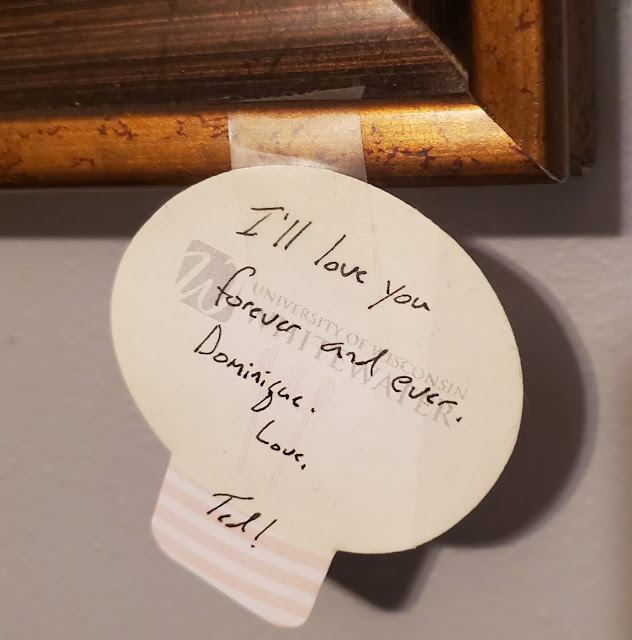 I'll love you
forever and ever.
Dominique.
Love,
Ted!
UNIVERSITY OF WISCONSIN
WHITEWATER